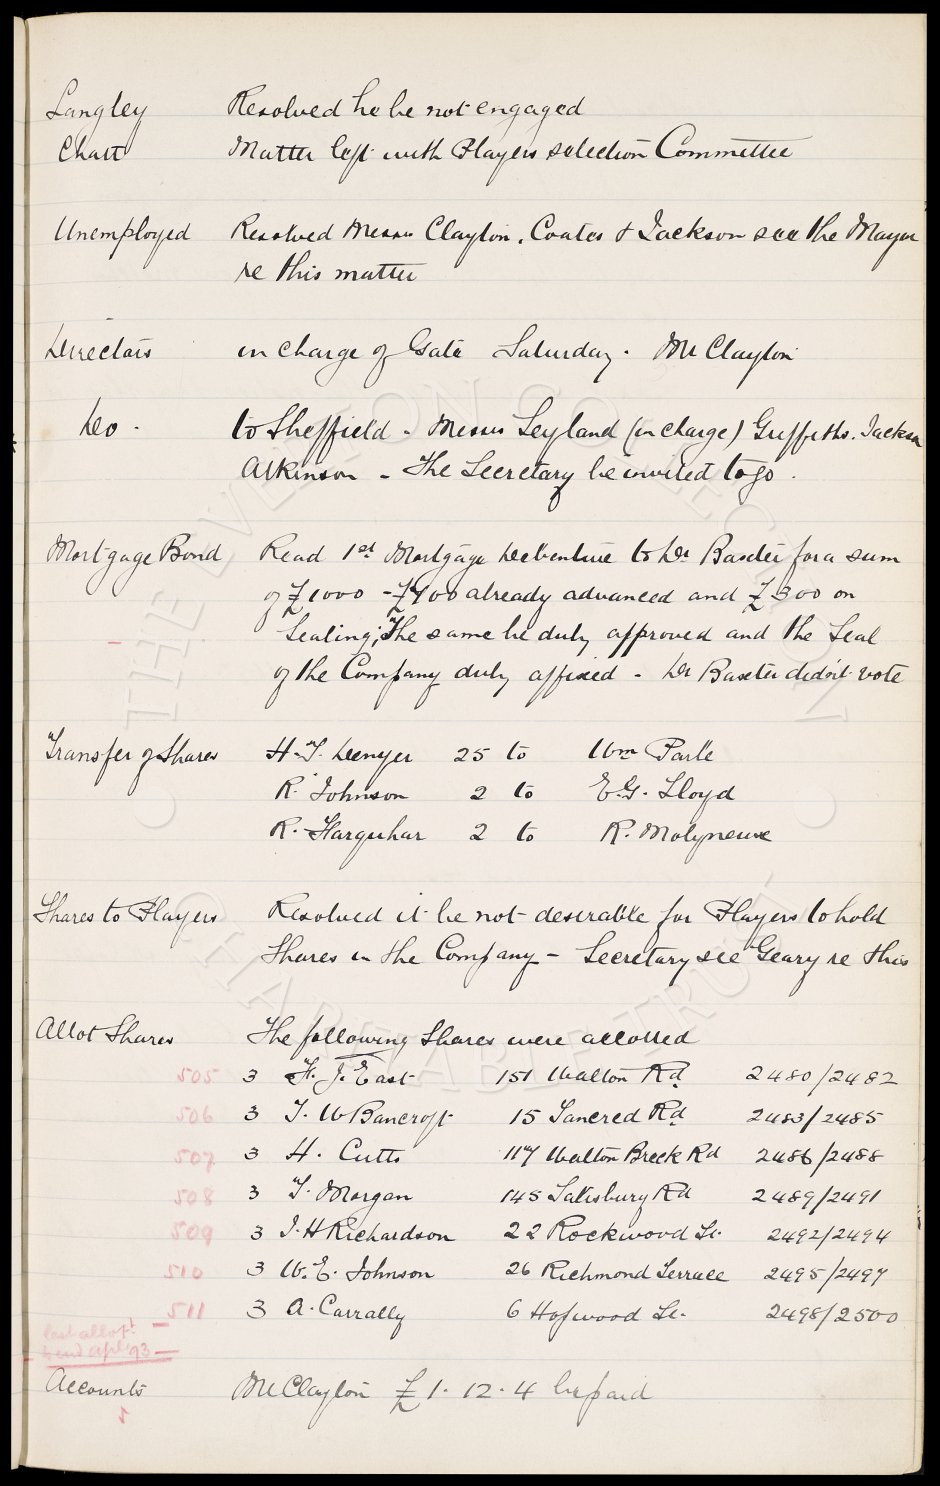 Langley Resolved he be not engaged
Chatt Matter left with Players selection Committee
Unemployed Resolved Messrs Clayton, Coates & Jackson see the Mayor
re this matter
Directors in charge of Gate Saturday. Mr Clayton
Do. to Sheffield - Messrs Leyland (in charge) Griffiths. Jackson
Atkinson - The Secretary be invited to go.
Mortgage Bond Read 1st Mortgage Debenture to Dr Baxter for a sum
of £1000 - £700 already advanced and £300 on
Sealing; The same be duly approved and the Seal
of the Company duly affixed - Dr Baxter didn't vote
Transfer of Shares H.T. Denyer 25 to Wm Parle
R. Johnson 2 to E.G. Lloyd
R. Farquhar 2 to R. Molyneux
Shares to Players Resolved it be not desirable for Players to hold
Shares in the Company - Secretary see Geary re this
Allot Shares The following Shares were allotted
505 3 F. J. East 151 Walton Rd 2480/2482
506 3 T. W Bancroft 15 Tancred Rd 2483/2485
507 3 H. Cutts 117 Walton Breck Rd 2486/2488
508 3 T. Morgan 145 Salisbury Rd 2489/2491
509 3 J. H Richardson 22 Rockwood St. 2492/2494
510 3 W. E. Johnson 26 Richmond Terrace 2495/2497
511 3 A. Carrally 6 Hopwood St. 2498/2500
last allot
93
Accounts Mr Clayton £1. 12. 4 be paid
THE EVERTON COLLECTION
CHARITABLE TRUST